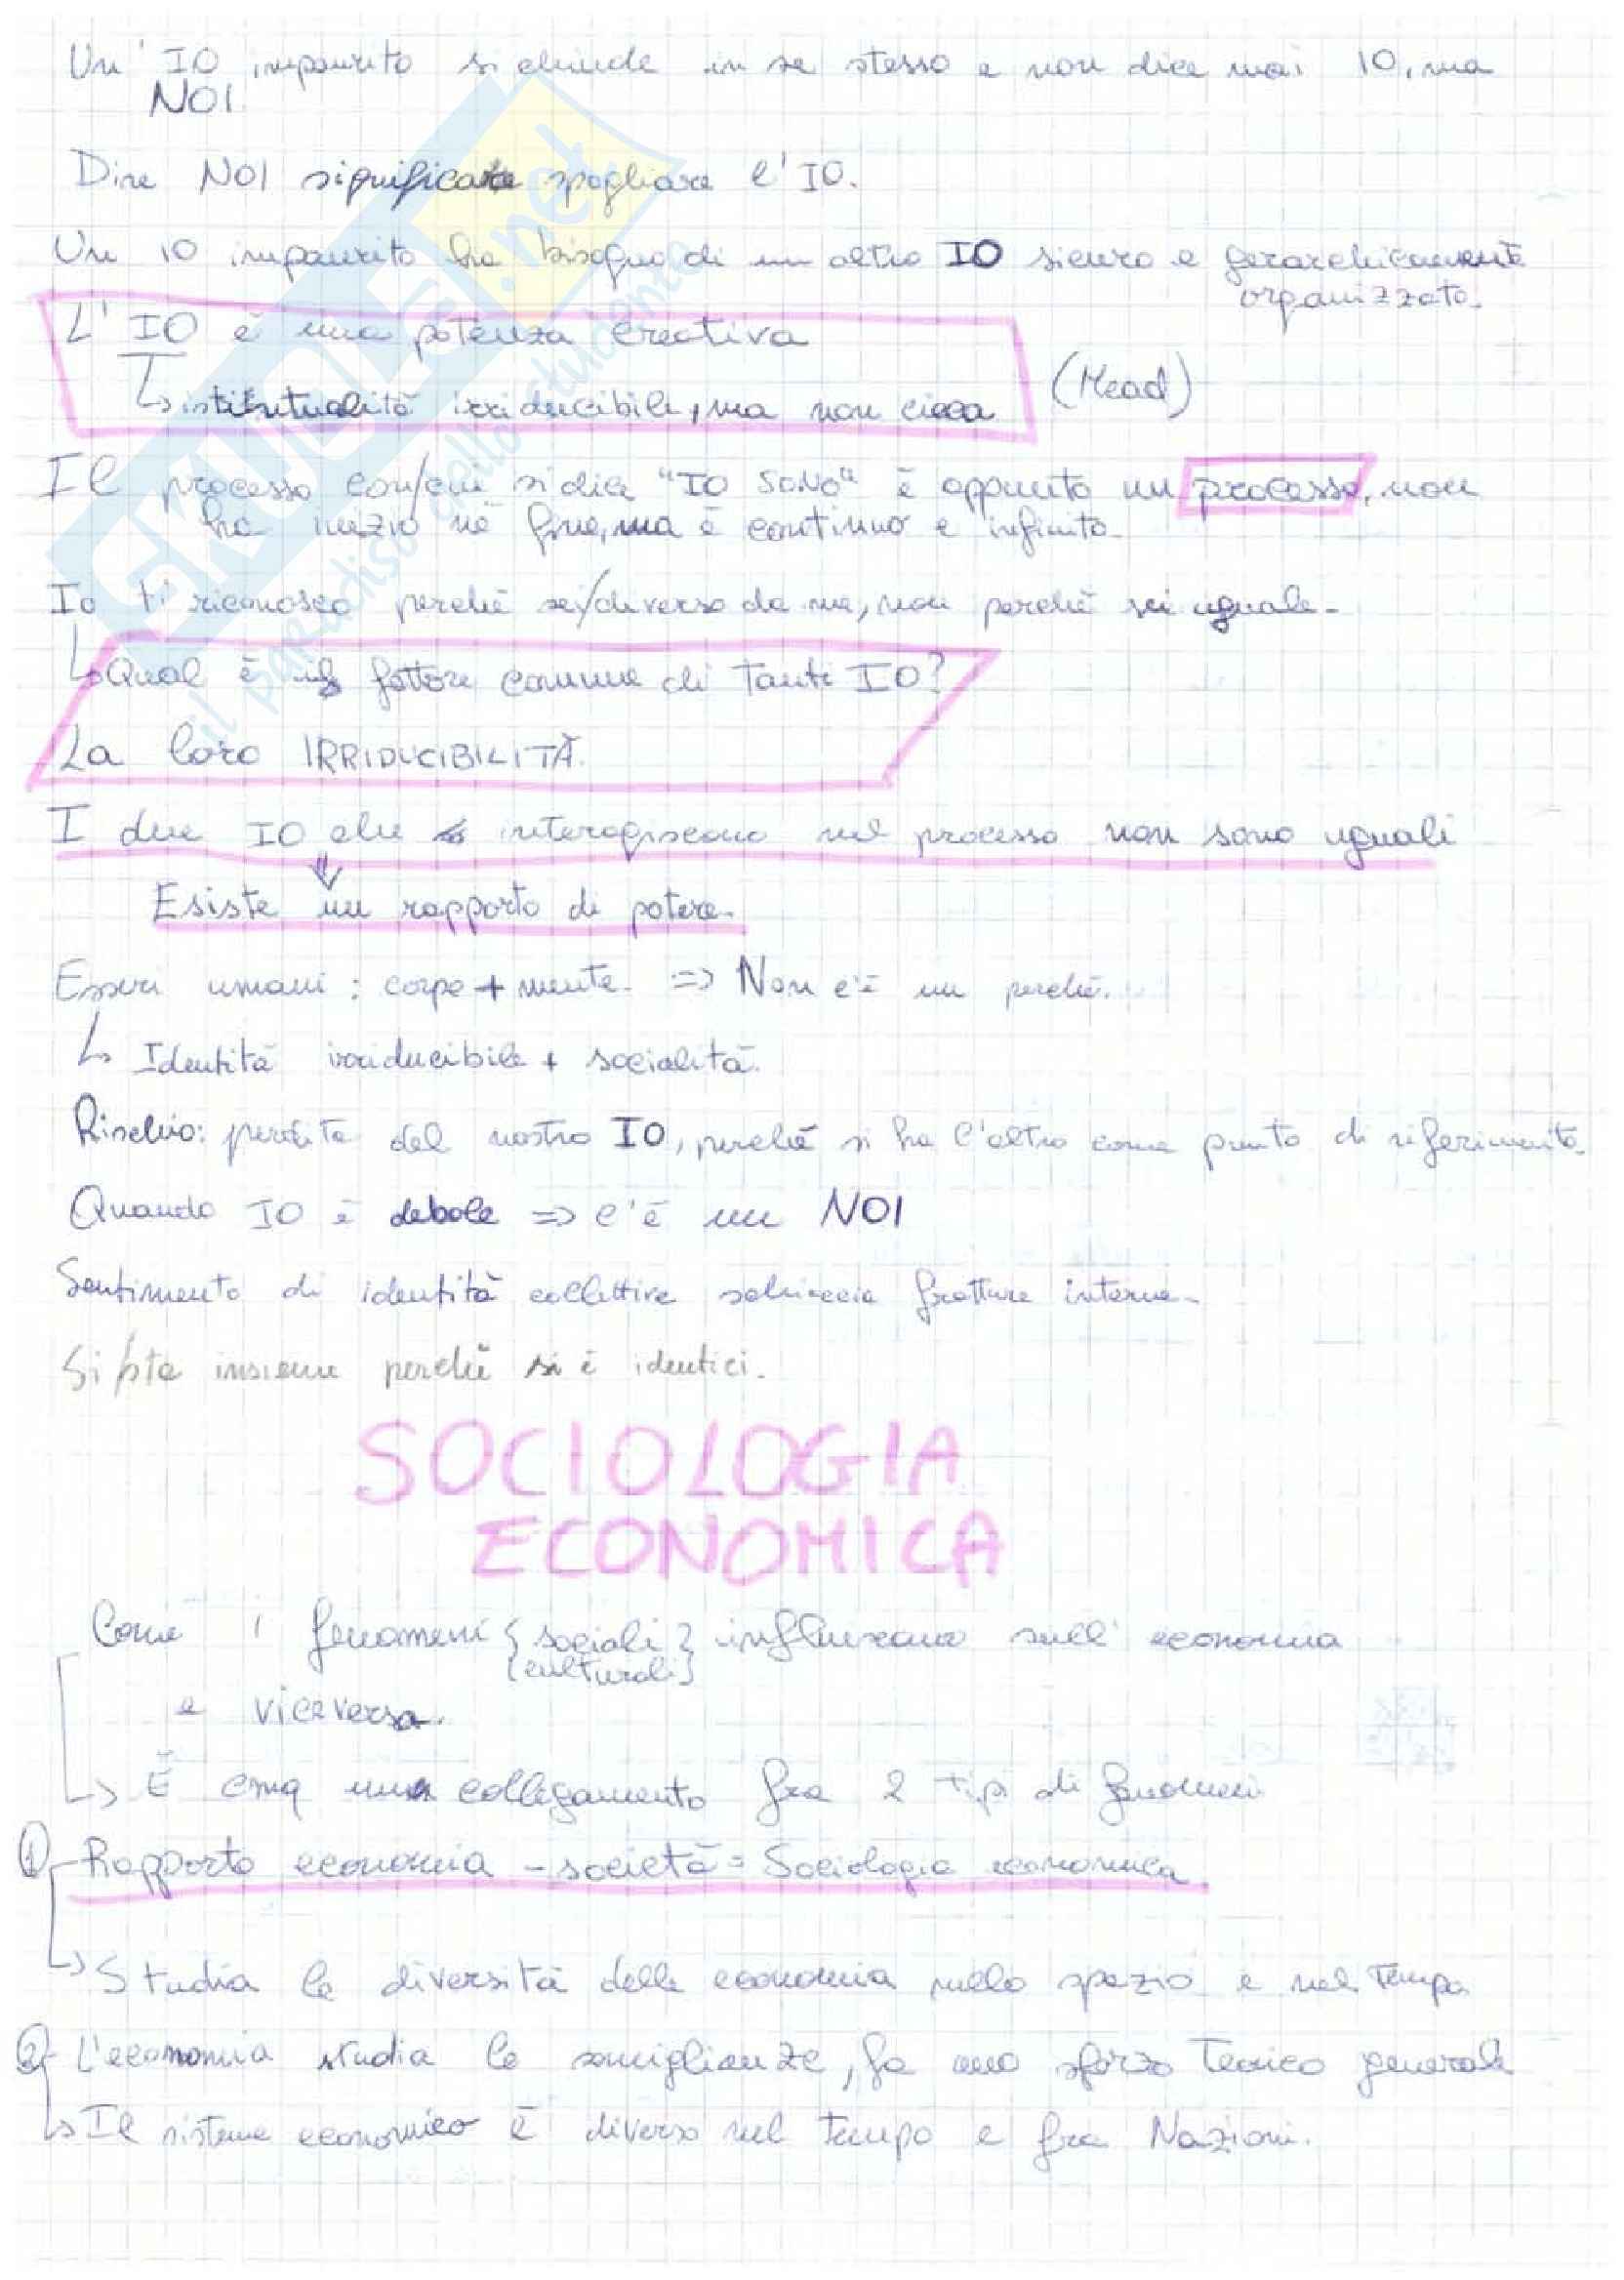 Un' IO impaurito si chiude in se stesso e non dice mai IO, ma
NOI
Dire NOI significa spogliare l'IO.
Un IO impaurito ha bisogno di un altro IO sicuro e gerarchicamente
organizzato.
L'IO è una potenza creativa
irriducibile, ma non cieca
(Mead)
Il processo con cui si dice "IO SONO" è appunto un processo, non
ha inizio né fine, ma è continuo e infinito.
Io ti riconosco perché sei diverso da me, non perché sei uguale.
Qual è il fattore comune di tanti IO?
La loro IRRIDUCIBILITÀ.
I due IO che interagiscono nel processo non sono uguali
Esiste un rapporto di potere.
Esseri umani: corpo + mente. => Non c'è un perché.
Identità irriducibile + socialità.
Rischio: perdita del nostro IO, perché si ha l'altro come punto di riferimento.
Quando IO è debole => c'è un NOI
Sentimento di identità collettiva schiaccia fratture interne.
Si sta insieme perché si è identici.
SOCIOLOGIA
ECONOMICA
Come i fenomeni {sociali} influenzano sull'economia
{culturali}
e viceversa.
È cmq un collegamento fra 2 tipi di fenomeni
① Rapporto economia - società = Sociologia economica
Studia le diversità delle economia nello spazio e nel tempo
② L'economia studia le somiglianze, fa uno sforzo teorico generale
Il sistema economico è diverso nel tempo e fra Nazioni.
SKUOLA.net
il paradiso dello studente